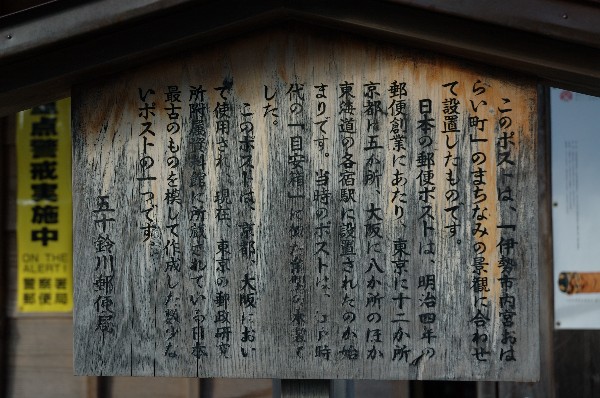 このポストは、「伊勢市内宮おは
らい町」のまちなみの景観に合わせ
て設置したものです。
日本の郵便ポストは、明治四年の
郵便創業にあたり、東京に十二か所
京都に五か所、大阪に八か所のほか
東海道の各宿駅に設置されたのが始
まりです。当時のポストは、江戸時
代の「目安箱」に
した。
このポストは、京都、大阪におい
で使用され、現在、東京の郵政研究
所附属資料館に所蔵されている日本
最古のものを模して作成した数少な
いポストの一つです。
五十鈴川郵便局
点警戒実施中
ON THE
ALERT!
警察署
郵便局